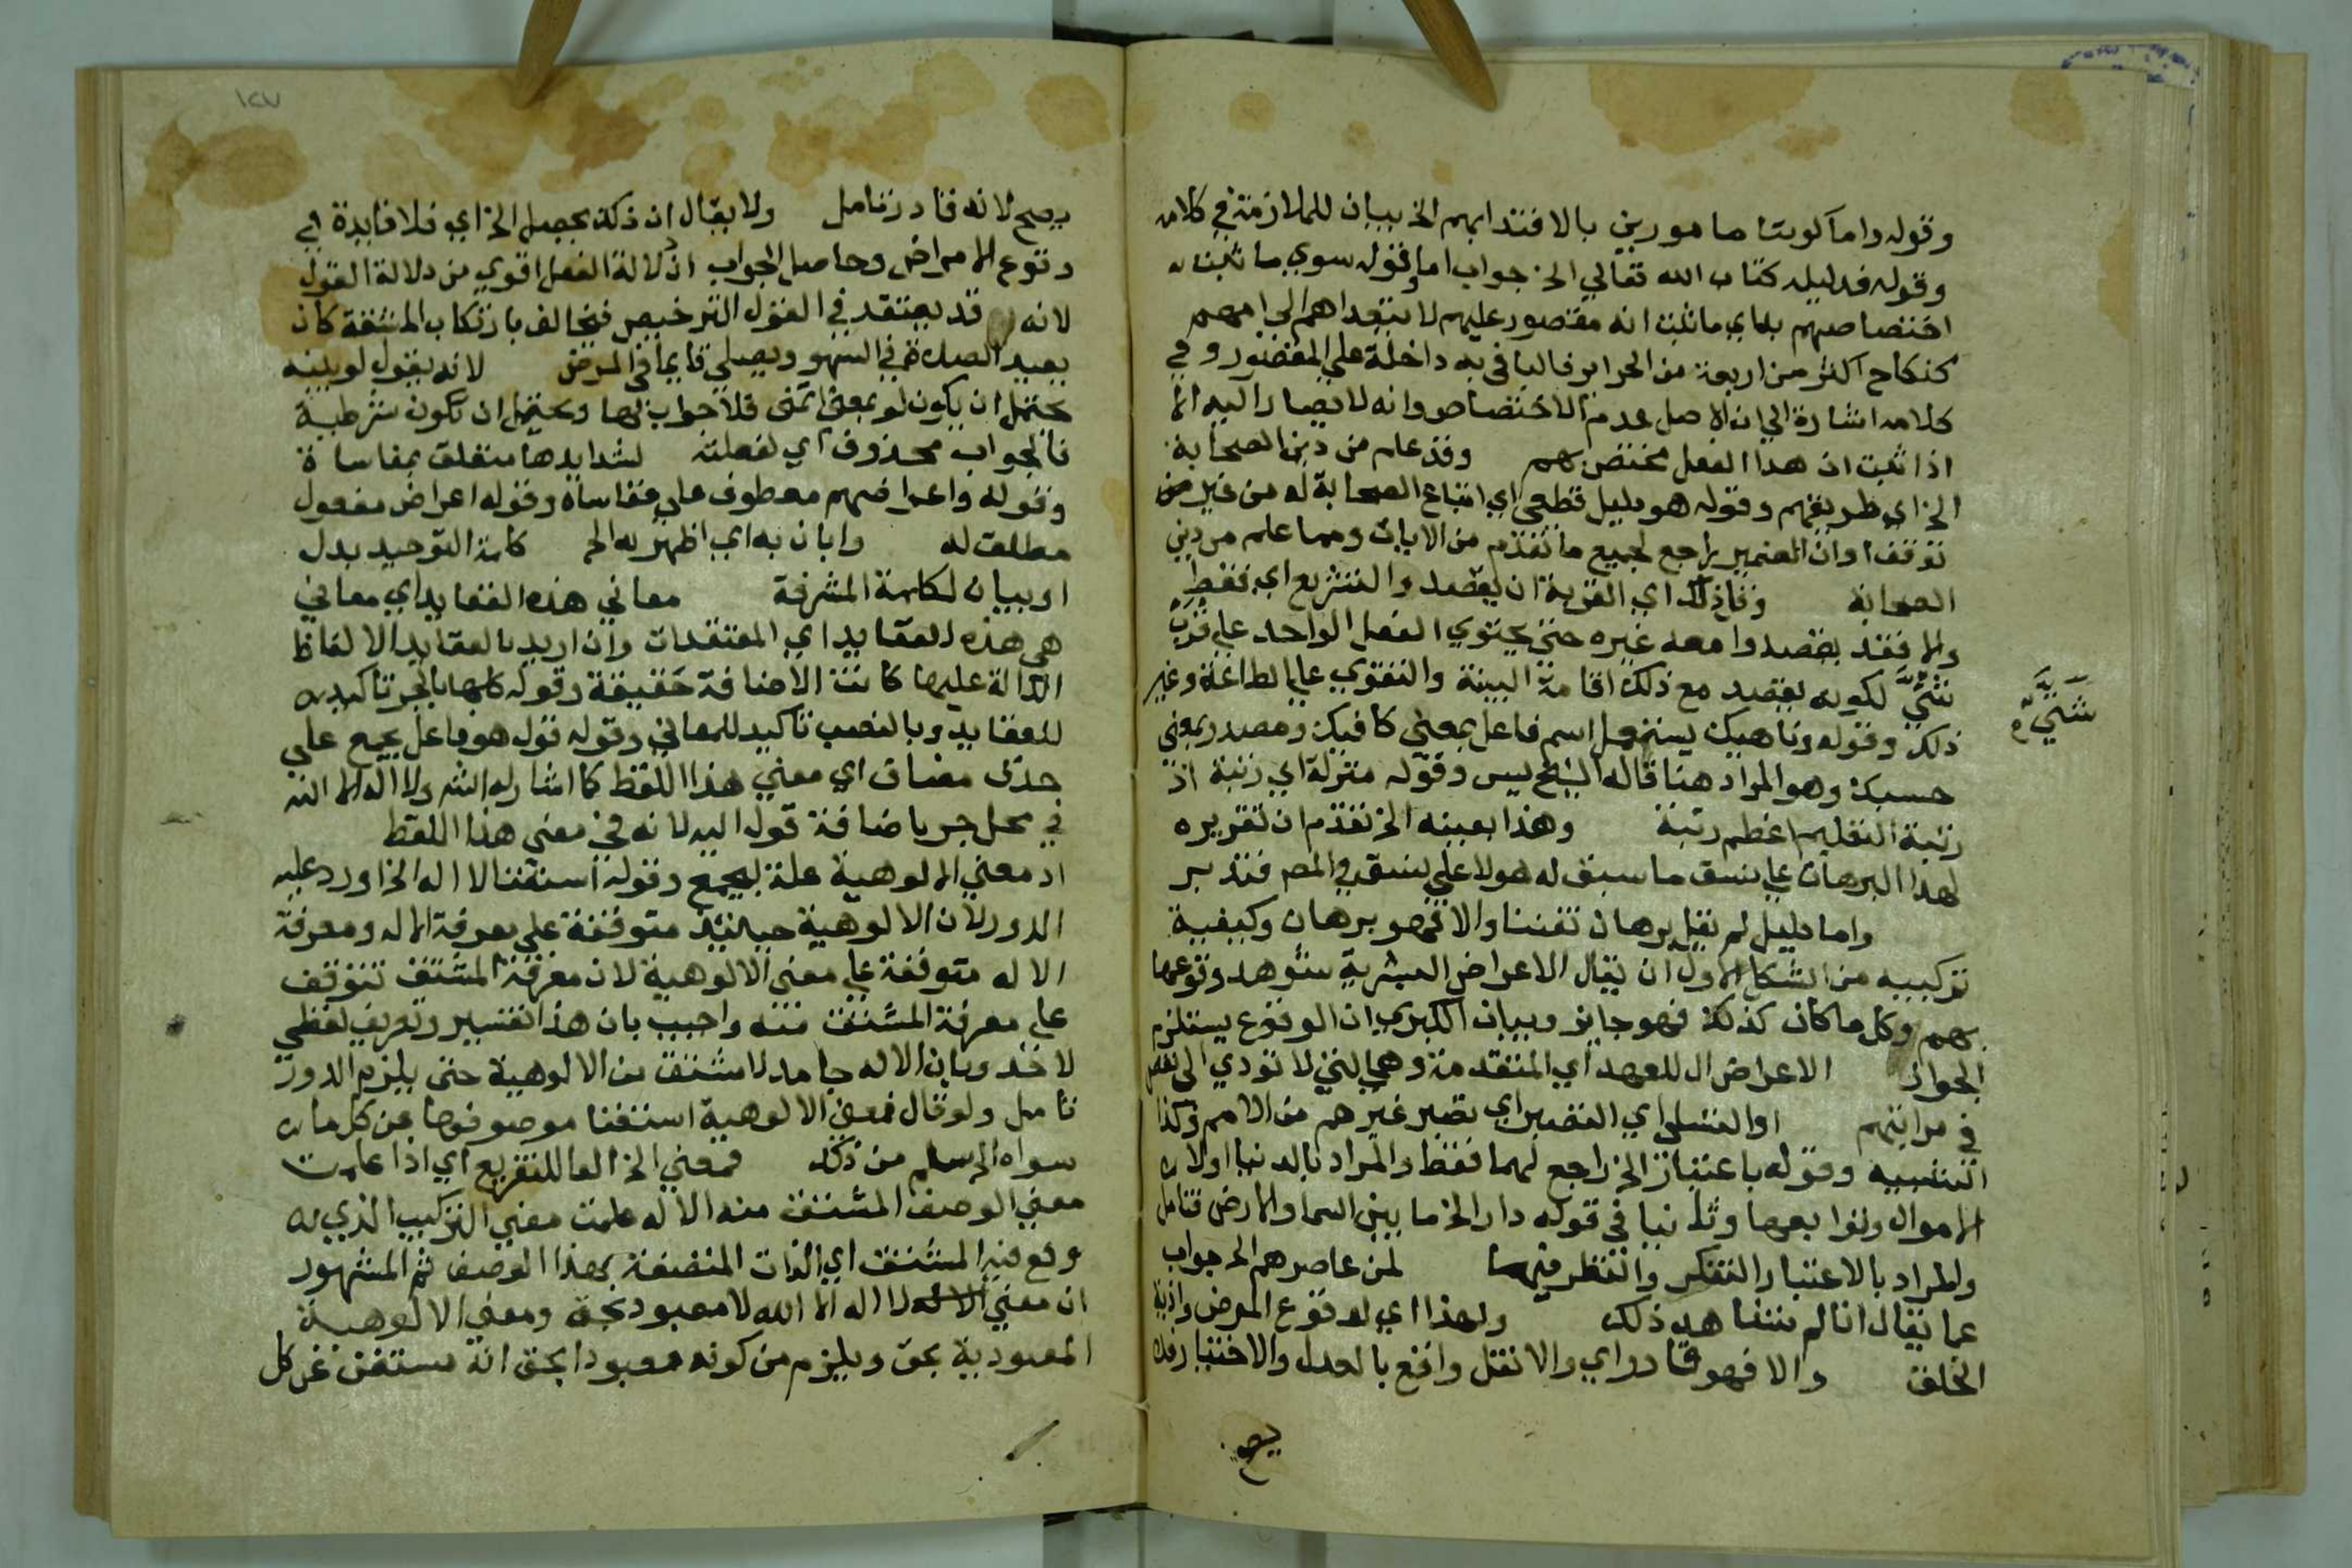 وقوله واما كوننا مامورين بالاقتدا بهم الخ بيان للملازمة في كلامه
وقوله فدليله كتاب الله تعالي الخ جواب اما وقوله سوي ما ثبت
اختصاصهم به اي ما ثبت انه مقصور عليهم لا يتعداهم الي اممهم
كنكاح اكثر من اربعة من الحراير فالبا في به داخلة علي المقصور وفي
كلامه اشارة الي ان الاصل عدم الاختصاص وانه لا يصار اليه الا
اذا ثبت ان هذا الفعل مختص بهم وقد علم من دين الصحابة
الخ اي طريقتهم وقوله هو دليل قطعي اي اتباع الصحابة له من غير
توقف او ان الضمير راجع لجميع ما تقدم من الايات ومما علم من دين
الصحابة وقاز ذلك اي القربة ان يقصد والتشريع اي فقط
والا فقد يقصدوا معه غيره حتي يحتوي الفعل الواحد علي قرب
شتي لكونه يقصد مع ذلك اقامة البينة والتقوي علي الطاعة وغير
شتي
ذلك وقوله وناهيك يستعمل اسم فاعل بمعني كافيك ومصدر بمعني
حسبك وهو المراد هنا قاله الشيخ يس وقوله منزلة اي رتبة اذ
رتبة التعليم اعظم رتبة وهذا بعينه الخ تقدم ان تقريره
لهذا البرهان علي نسق ما سبق له هو لا علي نسق في المصر فتدبر
واما دليل لم يقل برهان تفننا والا فهو برهان وكيفية
تركيبه من الشكل الاول ان يقال الاعراض البشرية شوهد وقوعها
بهم وكل ما كان كذلك فهو جايز وبيان الكبري ان الوقوع يستلزم
الجواز الاعراض ال للعهد اي المتقدمة وهي التي لا تودي الي نقص
في مراتبهم او التسلي اي التصبر اي تصبر غيرهم من الامم وكذا
التنبيه وقوله باعتبار الخ راجع لهما فقط والمراد بالدنيا اولا
الاموال وتوابعها وثانيا في قوله دار الخ ما بين السما والارض فتامل
والمراد بالاعتبار التفكر والنظر فيها لمن عاصرهم الخ جواب
عما يقال انا لم نشاهد ذلك ولهذا اي لوقوع المرض واذية
الخلق والا فهو قادر اي والا نقل واقع بالعدل والاختيار فلا
يصح
١٢٧
يصح لانه قادر تامل ولا يقال ان ذلك يحصل الخ اي فلا فايدة في
وقوع الامراض وحاصل الجواب ان دلالة الفعل اقوي من دلالة القول
لانه قد يعتقد في القول الترخيص فيخالف بارتكاب المشقة كان
يعيد الصلاة في السهو ويصلي قايما في المرض لانه يقول لو بلينه
يحتمل ان يكون لو بمعني اتمني فلا جواب لها ويحتمل ان تكون شرطية
فالجواب محذوف اي لفعلته لشدايدها متعلق بمقاساة
وقوله واعراضهم معطوف علي مقاساة وقوله اعراض مفعول
مطلق له وابان به اي اظهر به الخ كلمة التوحيد بدل
او بيان لكلمة المشرفة معاني هذه العقايد اي معاني
هي هذه العقايد اي المعتقدات وان اريد بالعقايد الالفاظ
الدالة عليها كانت الاضافة حقيقة وقوله كلها بالجر تاكيد
للعقايد وبالنصب تاكيد للمعاني وقوله قول هو فاعل يجمع علي
حذف مضاف اي معني هذا اللفظ كما اشار له الش ولا اله الا الله
في محل جر باضافة قول اليه لانه في معني هذا اللفظ
اذ معني الالوهية علة ليجمع وقوله استغنا الاله الخ اورد عليه
الدور لان الالوهية حينئذ متوقفة علي معرفة الاله ومعرفة
الاله متوقفة علي معني الالوهية لان معرفة المشتق تتوقف
علي معرفة المشتق منه واجيب بان هذا تفسير وتعريف لفظي
لا حد وبان الاله جامد لا مشتق من الالوهية حتي يلزم الدور
تامل ولو قال فمعني الالوهية استغنا موصوفها عن كل ما
سواه الخ سلم من ذلك فمعني الخ الفا للتفريع اي اذا علمت
معني الوصف المشتق منه الاله علمت معني التركيب الذي
وقع فيه المشتق اي الذات المتصفة بهذا الوصف ثم المشهور
ان معني لا اله الا الله لا معبود بحق ومعني الالوهية
المعبودية بحق ويلزم من كونه معبودا بحق انه مستغن عن كل